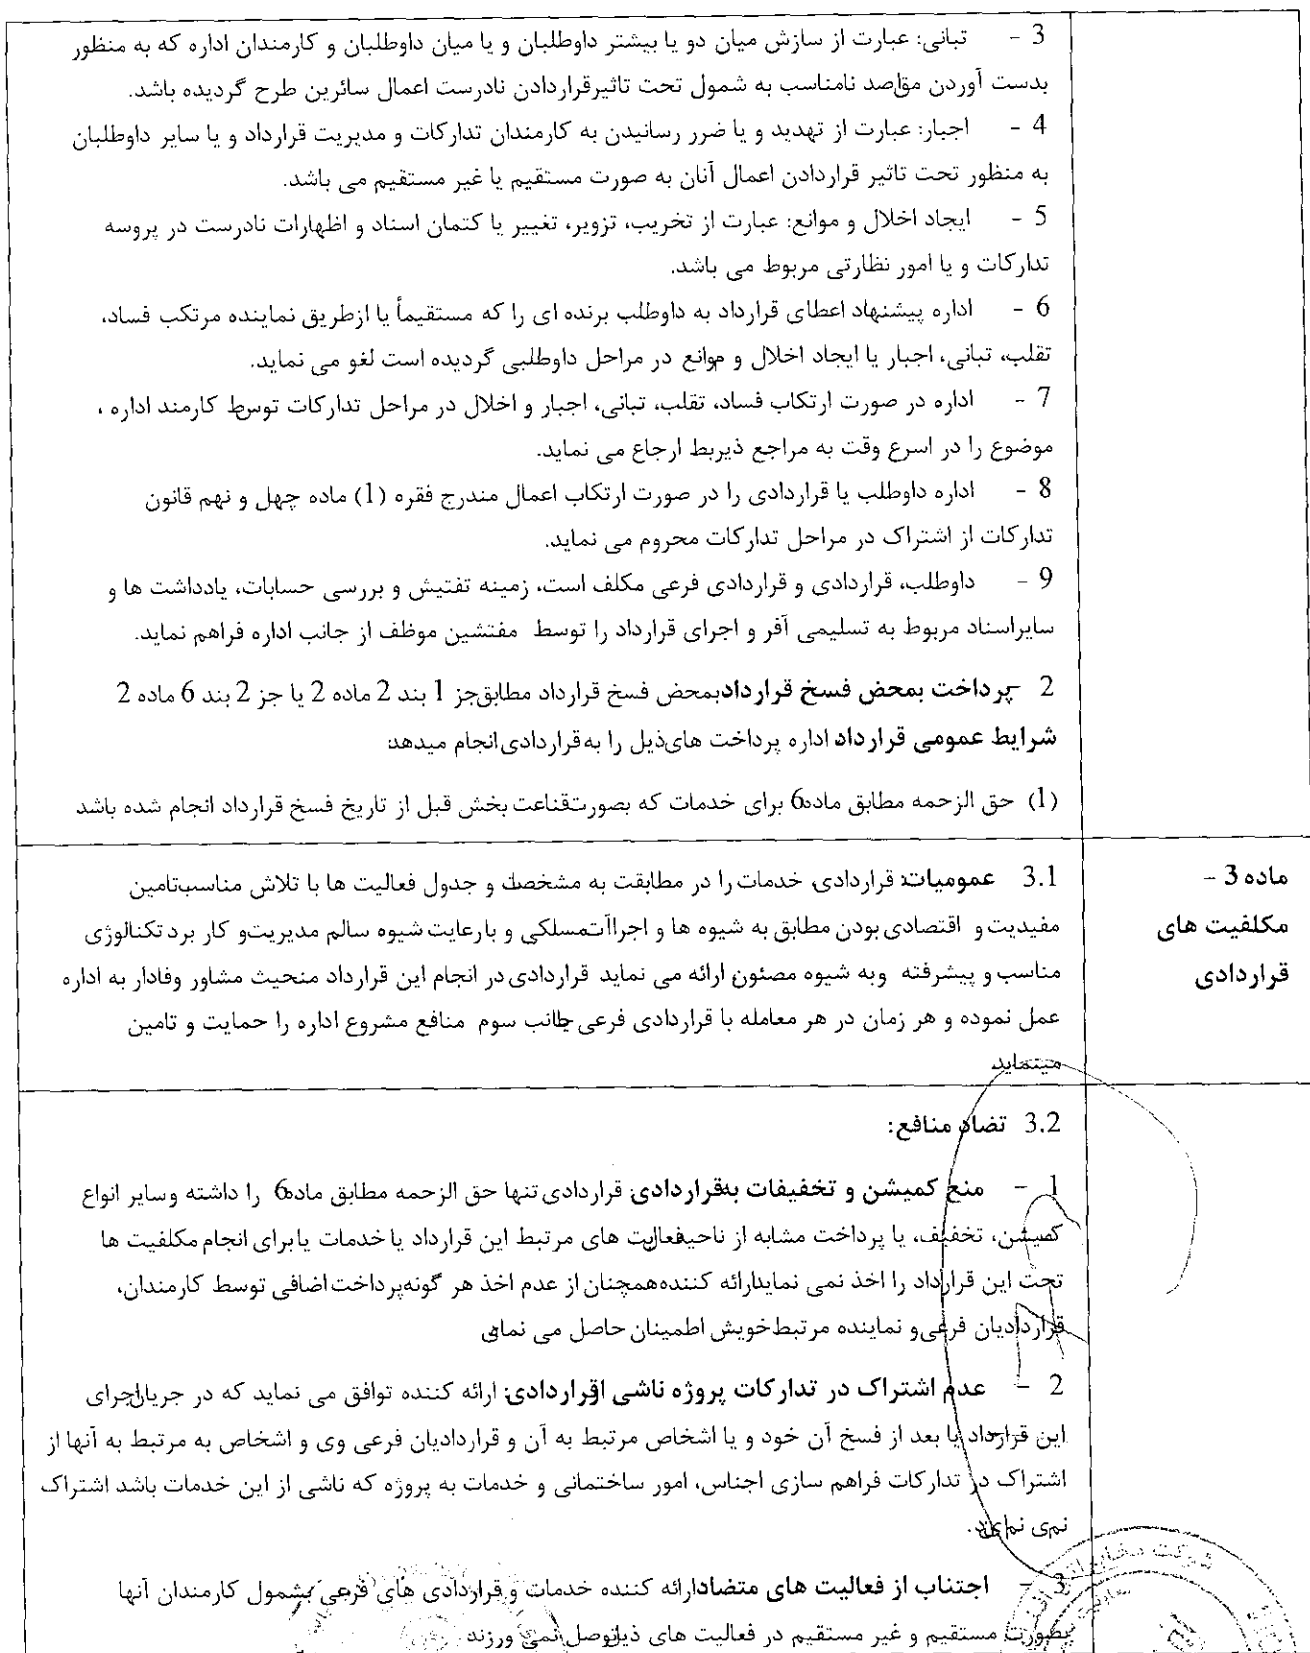 3 - تبانی: عبارت از سازش میان دو یا بیشتر داوطلبان و یا میان داوطلبان و کارمندان اداره که به منظور
بدست آوردن مقاصد نامناسب به شمول تحت تاثیرقراردادن نادرست اعمال سائرین طرح گردیده باشد.
4 - اجبار: عبارت از تهدید و یا ضرر رسانیدن به کارمندان تدارکات و مدیریت قرارداد و یا سایر داوطلبان
به منظور تحت تاثیر قراردادن اعمال آنان به صورت مستقیم یا غیر مستقیم می باشد.
5 - ایجاد اخلال و موانع: عبارت از تخریب، تزویر، تغییر یا کتمان اسناد و اظهارات نادرست در پروسه
تدارکات و یا امور نظارتی مربوط می باشد.
6 - اداره پیشنهاد اعطای قرارداد به داوطلب برنده ای را که مستقیماً یا ازطریق نماینده مرتکب فساد،
تقلب، تبانی، اجبار یا ایجاد اخلال و موانع در مراحل داوطلبی گردیده است لغو می نماید.
7 - اداره در صورت ارتکاب فساد، تقلب، تبانی، اجبار و اخلال در مراحل تدارکات توسط کارمند اداره ،
موضوع را در اسرع وقت به مراجع ذیربط ارجاع می نماید.
8 - اداره داوطلب یا قراردادی را در صورت ارتکاب اعمال مندرج فقره (1) ماده چهل و نهم قانون
تدارکات از اشتراک در مراحل تدارکات محروم می نماید.
9 - داوطلب، قراردادی و قراردادی فرعی مکلف است، زمینه تفتیش و بررسی حسابات، یادداشت ها و
سایراسناد مربوط به تسلیمی آفر و اجرای قرارداد را توسط مفتشین موظف از جانب اداره فراهم نماید.
2 -پرداخت بمحض فسخ قراردادبمحض فسخ قرارداد مطابق جز 1 بند 2 ماده 2 یا جز 2 بند 6 ماده 2
شرایط عمومی قرارداد اداره پرداخت های ذیل را به قراردادی انجام میدهد
(1) حق الزحمه مطابق ماده 6 برای خدمات که بصورت قناعت بخش قبل از تاریخ فسخ قرارداد انجام شده باشد
ماده 3 -
مکلفیت های
قراردادی
3.1 عمومیات: قراردادی خدمات را در مطابقت به مشخصات و جدول فعالیت ها با تلاش مناسب تامین
مفیدیت و اقتصادی بودن مطابق به شیوه ها و اجراآت مسلکی و بارعایت شیوه سالم مدیریت و کار برد تکنالوژی
مناسب و پیشرفته وبه شیوه مصئون ارائه می نماید قراردادی در انجام این قرارداد منحیث مشاور وفادار به اداره
عمل نموده و هر زمان در هر معامله با قراردادی فرعی جانب سوم منافع مشروع اداره را حمایت و تامین
مینماید
3.2 تضاد منافع:
1 - منع کمیشن و تخفیفات به قراردادی: قراردادی تنها حق الزحمه مطابق ماده 6 را داشته وسایر انواع
کمیشن، تخفیف، یا پرداخت مشابه از ناحیه فعالیت های مرتبط این قرارداد یا خدمات یا برای انجام مکلفیت ها
تحت این قرارداد را اخذ نمی نماید ارائه کننده همچنان از عدم اخذ هر گونه پرداخت اضافی توسط کارمندان،
قراردادیان فرعی و نماینده مرتبط خویش اطمینان حاصل می نماید
2 - عدم اشتراک در تدارکات پروژه ناشی از قراردادی: ارائه کننده توافق می نماید که در جریان اجرای
این قرارداد یا بعد از فسخ آن خود و یا اشخاص مرتبط به آن و قراردادیان فرعی وی و اشخاص به مرتبط به آنها از
اشتراک در تدارکات فراهم سازی اجناس، امور ساختمانی و خدمات به پروژه که ناشی از این خدمات باشد اشتراک
نمی نماید.
3 - اجتناب از فعالیت های متضاد ارائه کننده خدمات و قراردادی های فرعی بشمول کارمندان آنها
بطورت مستقیم و غیر مستقیم در فعالیت های ذیل توصل نمی ورزند